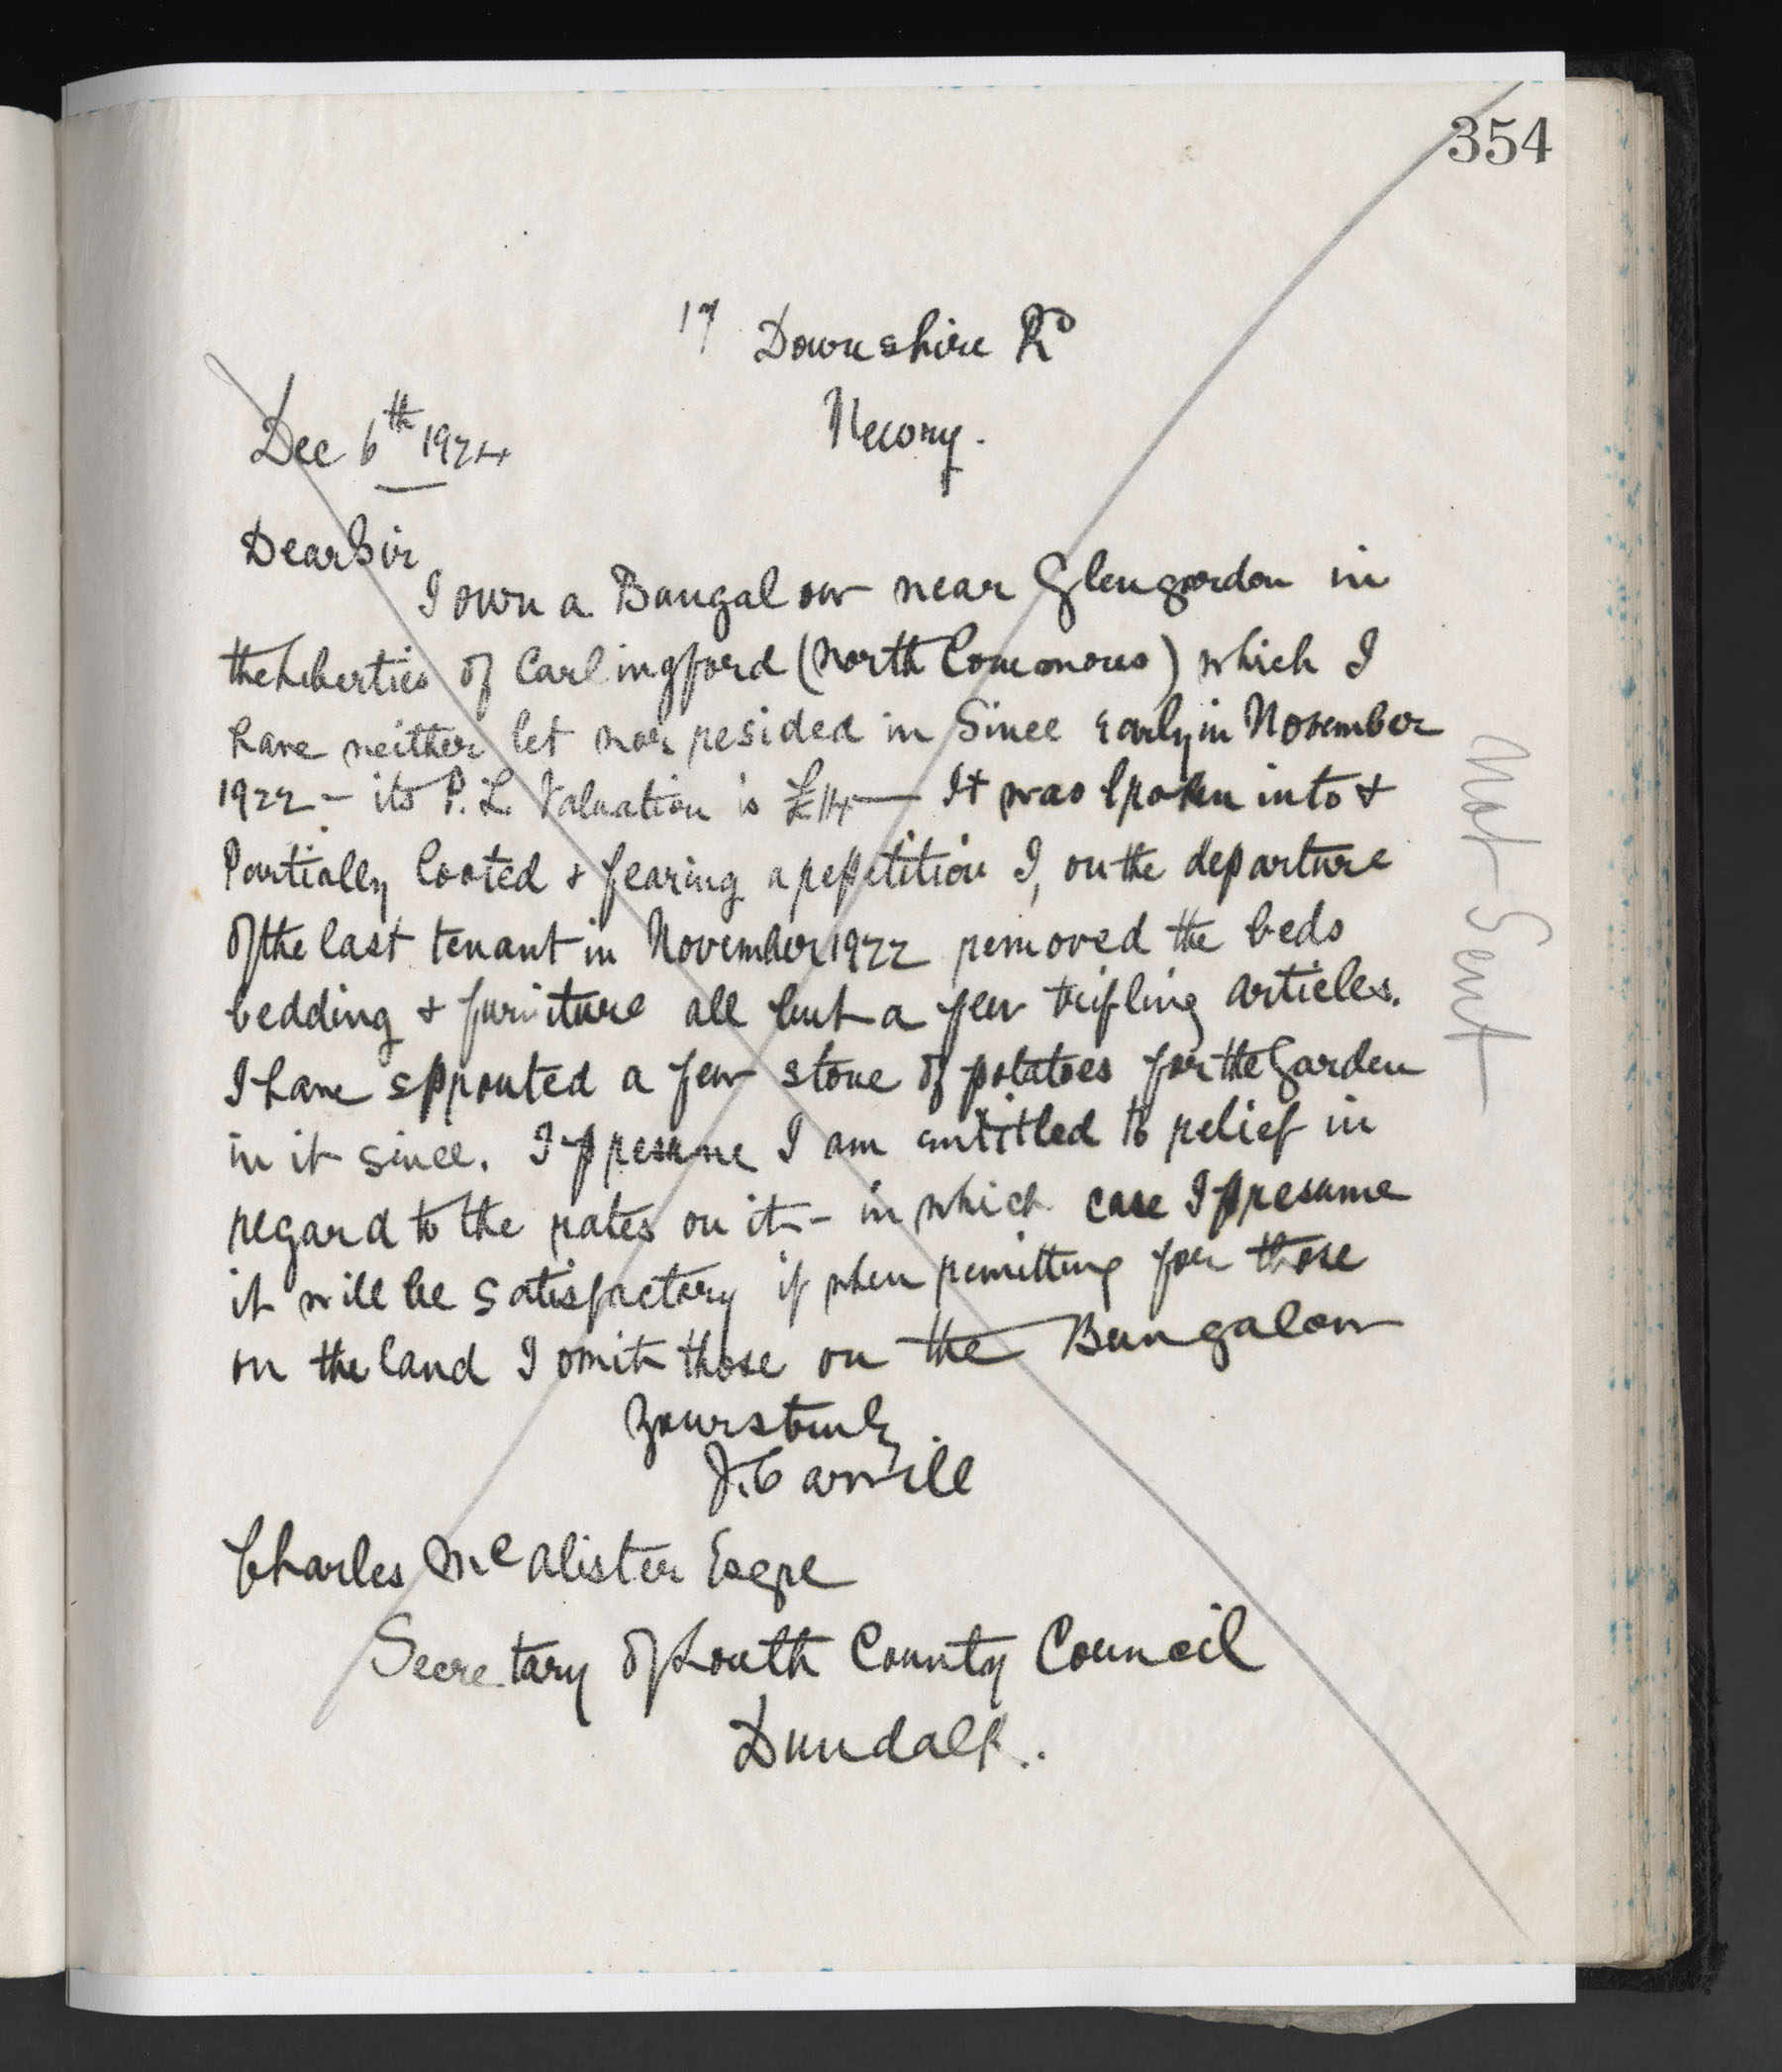 354
17 Downshire Rd
Newry.
Dec 6th 1924
Dear Sir
I own a Bungalow near Glengordon in
the Liberties of Carlingford (North Commons) which I
have neither let nor resided in Since Early in November
1922 - its P. L. Valuation is £14 — It was broken into &
Partially looted & fearing a repetition I, on the departure
of the last tenant in November 1922 removed the beds
bedding & furniture all but a few trifling articles.
I have sprouted a few stone of potatoes for the Garden
in it since. I presume I am entitled to relief in
regard to the rates on it - in which case I presume
it will be satisfactory if when remitting for those
on the land I omit those on the Bungalow
Yours truly
J. Carvill
Charles McAlister Esqre
Secretary of Louth County Council
Dundalk.
Not Sent